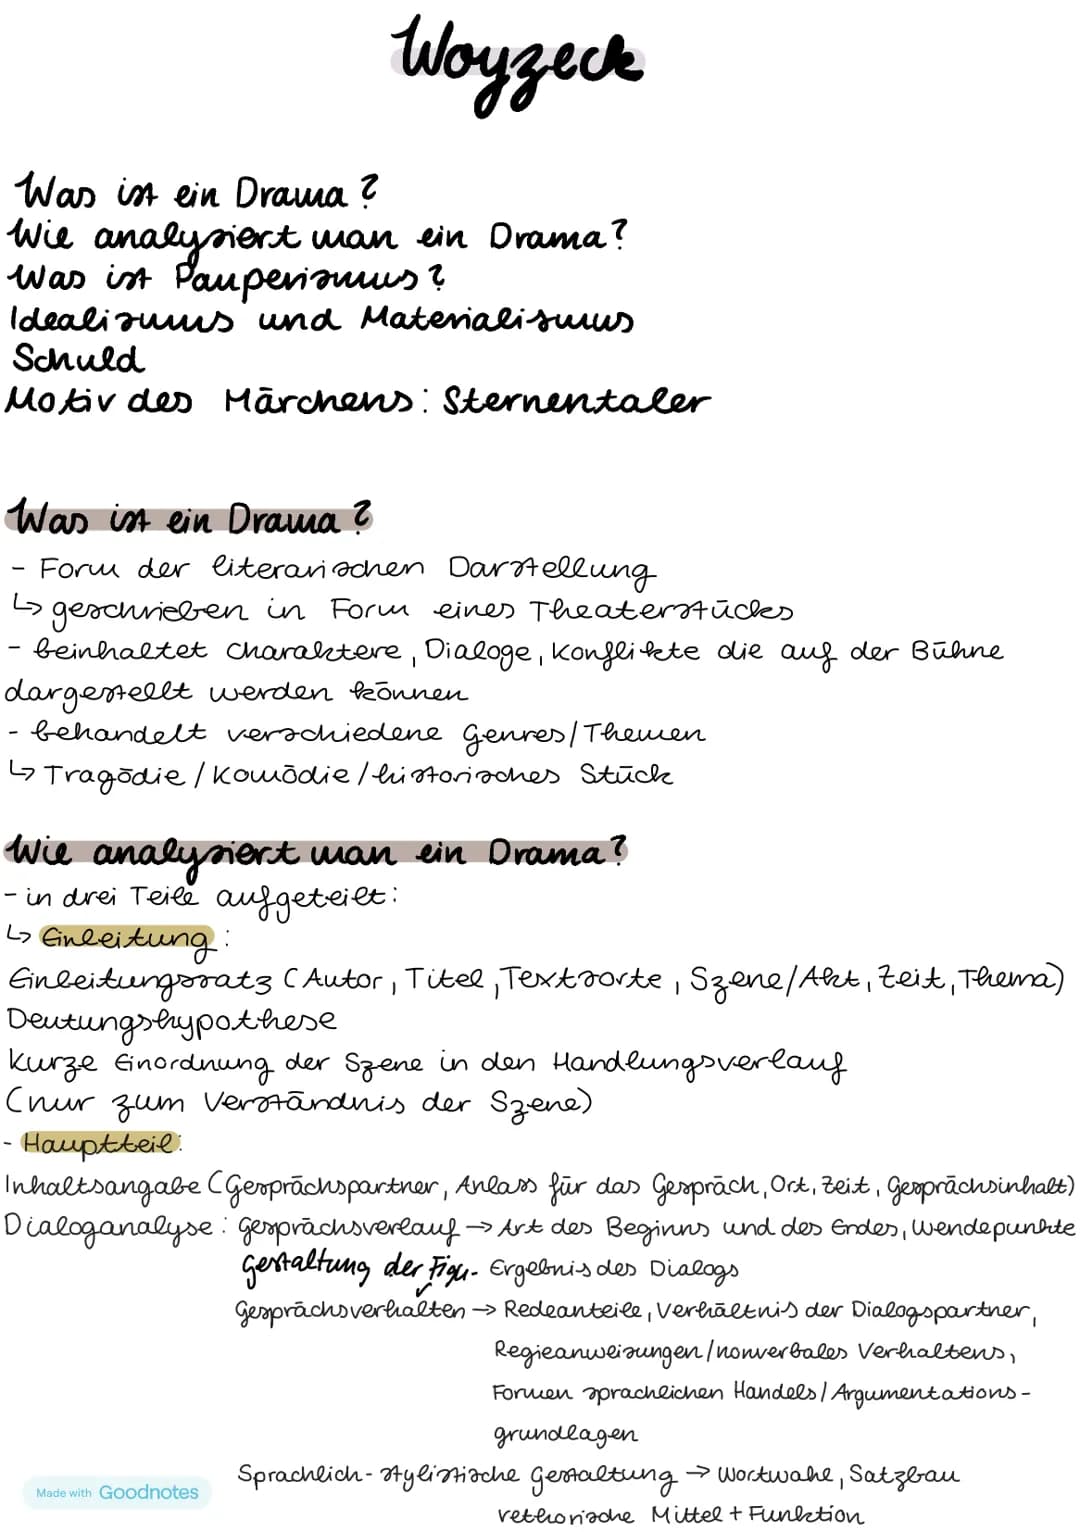 Woyzeck
Was ist ein Drama?
Wie analysiert man ein Drama?
Was ist Pauperismus?
Idealismus und Materialismus
Schuld
Motiv des Märchens: Sternentaler
Was ist ein Drama?
- Form der literarischen Darstellung
↳ geschrieben in Form eines Theaterstückes
- beinhaltet Charaktere, Dialoge, Konflikte die auf der Bühne
dargestellt werden können
- behandelt verschiedene Genres/Themen
↳ Tragödie / Komödie / historisches Stück
Wie analysiert man ein Drama?
- in drei Teile aufgeteilt:
↳ Einleitung:
Einleitungssatz (Autor, Titel, Textsorte, Szene/Akt, Zeit, Thema)
Deutungshypothese
Kurze Einordnung der Szene in den Handlungsverlauf
(nur zum Verständnis der Szene)
- Hauptteil:
Inhaltsangabe (Gesprächspartner, Anlass für das Gespräch, Ort, Zeit, Gesprächsinhalt)
Dialoganalyse: Gesprächsverlauf → Art des Beginns und des Endes, Wendepunkte
Gestaltung der Figu- Ergebnis des Dialogs
Gesprächsverhalten → Redeanteile, Verhältnis der Dialogspartner,
Regieanweisungen/nonverbales Verhaltens,
Formen sprachlichen Handels/Argumentations-
grundlagen
Sprachlich-stylistische Gestaltung → Wortwahl, Satzbau
rethorische Mittel + Funktion
Made with Goodnotes